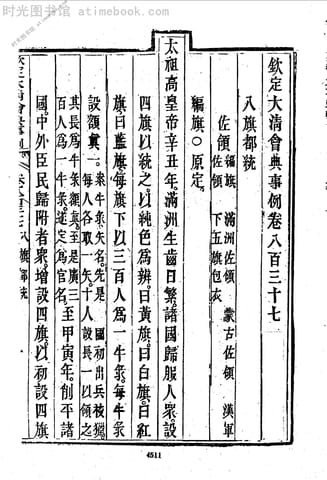 时光图书馆 www.atimebook.com
欽定大清會典事例卷八百三十七
八旗都統
佐領 編旗 滿洲佐領 蒙古佐領 漢軍
佐領 下五旗包衣
編旗○原定。
太祖高皇帝辛丑年。滿洲生齒日繁。諸國歸服人眾。設
四旗以統之。以純色為辨。曰黃旗。曰白旗。曰紅
旗。曰藍旗。每旗下以三百人為一牛彔。每牛彔
設額真一。
國初出兵校獵。
每人各取一矢。十人設長一以領之。
其長為牛彔額真。至是廣三
百人為一牛彔。遂定為官名。
至甲寅年。削平諸
國。中外臣民。歸附者眾。增設四旗。以初設四旗
八旗都統
4511